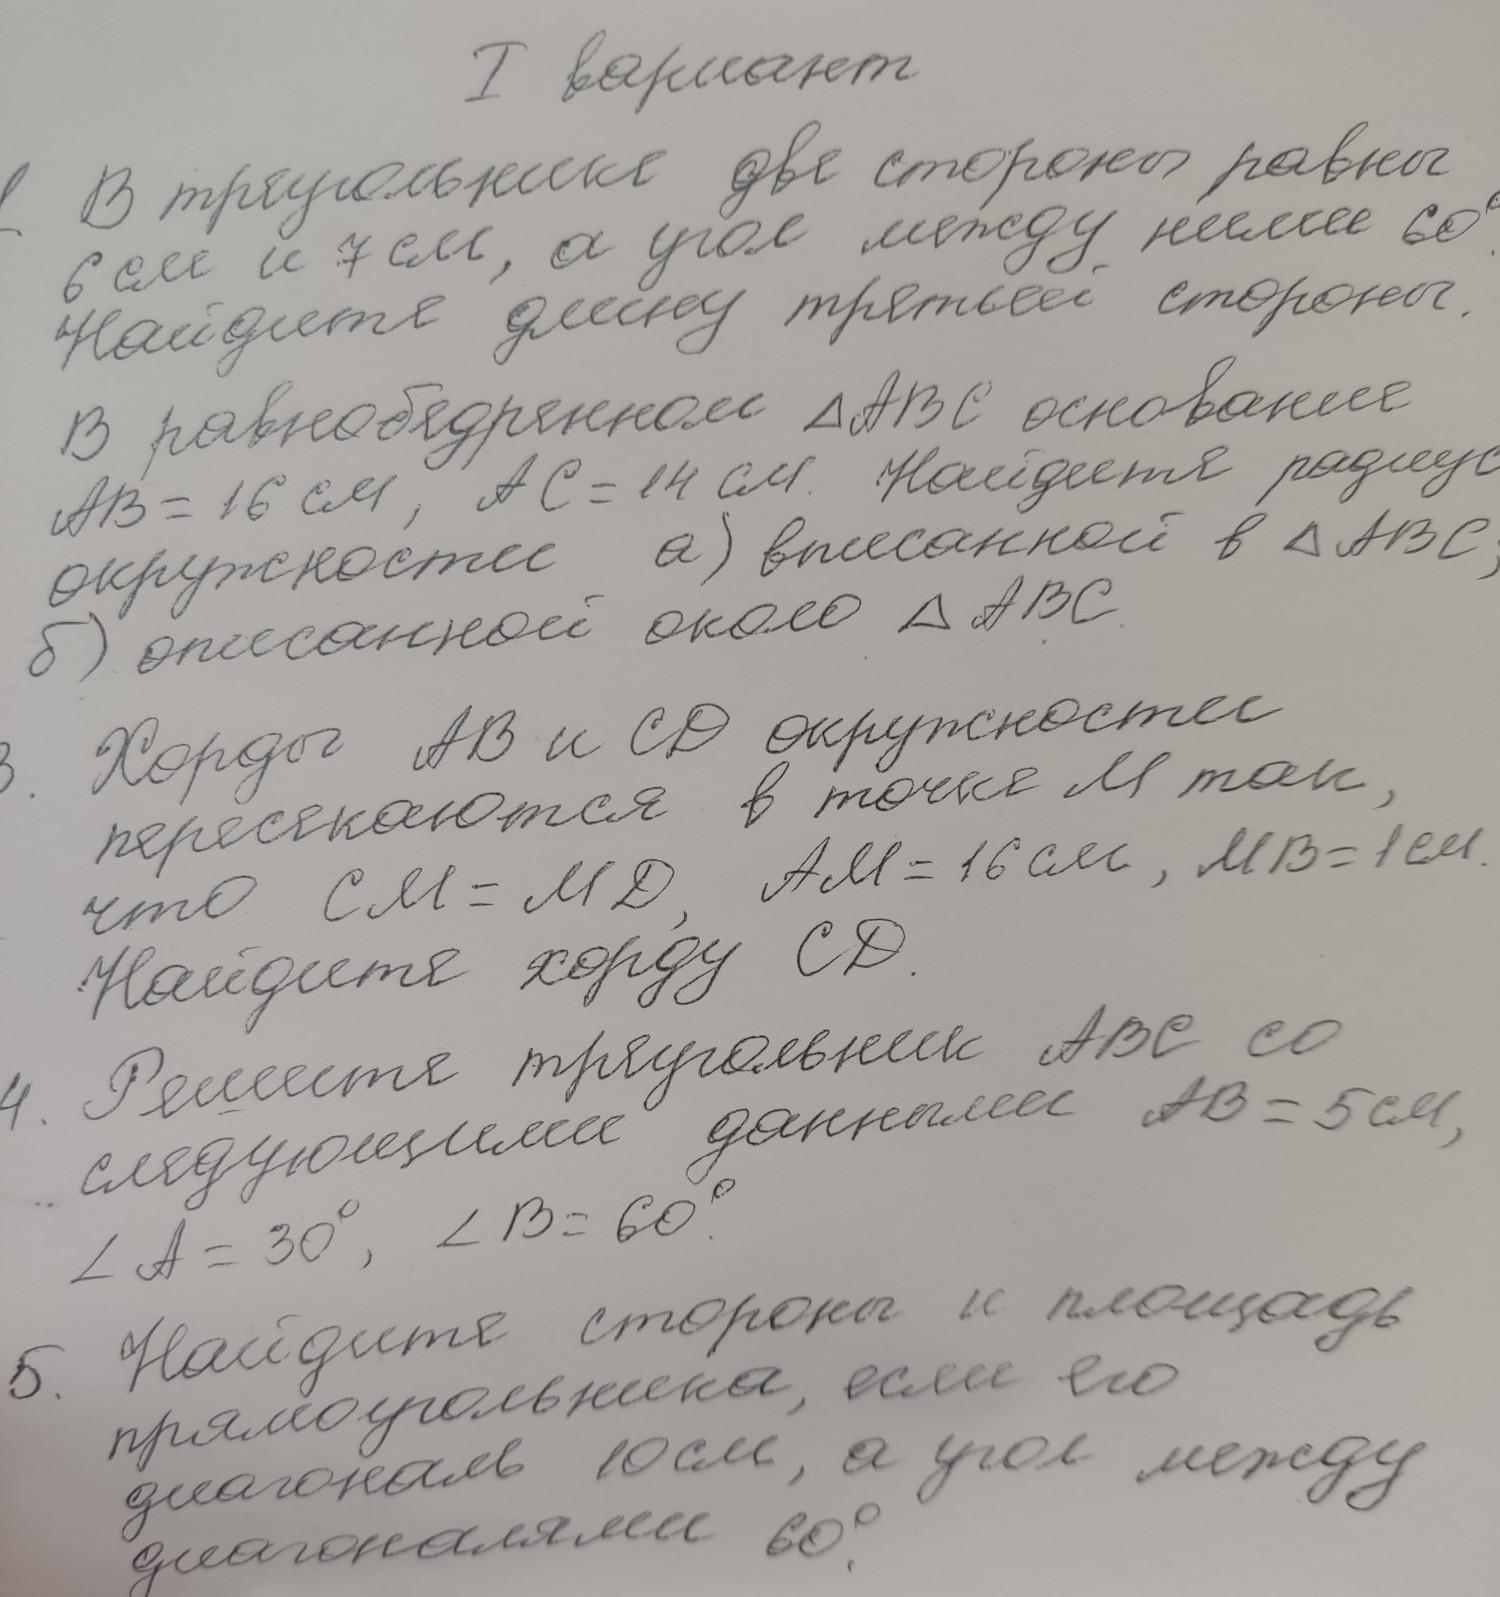 I вариант
1 В треугольнике две стороны равны
6 см и 7 см, а угол между ними 60°.
Найдите длину третьей стороны.
В равнобедренном △ABC основание
AB = 16 см, AC = 14 см. Найдите радиус
окружности а) вписанной в △ABC;
б) описанной около △ABC.
3. Хорды AB и CD окружности
пересекаются в точке M так,
что CM = MD, AM = 16 см, MB = 1 см.
Найдите хорду CD.
4. Решите треугольник ABC со
следующими данными AB = 5 см,
∠A = 30°, ∠B = 60°.
5. Найдите стороны и площадь
прямоугольника, если его
диагональ 10 см, а угол между
диагоналями 60°.